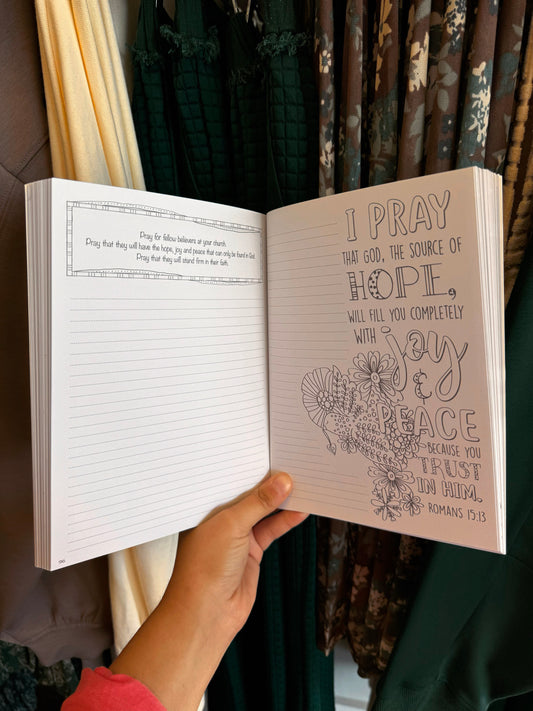 Pray for fellow believers at your church.
Pray that they will have the hope, joy and peace that can only be found in God.
Pray that they will stand firm in their faith.
I PRAY
THAT GOD, THE SOURCE OF
HOPE,
WILL FILL YOU COMPLETELY
WITH joy
& PEACE
BECAUSE YOU
TRUST
IN HIM.
ROMANS 15:13